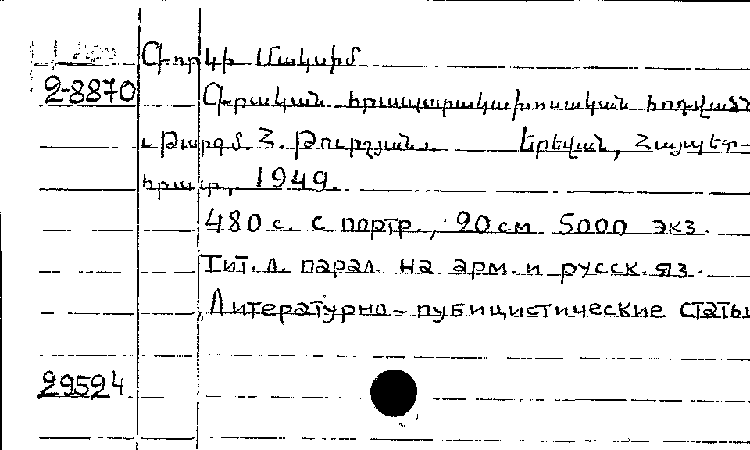 Գորկի Մաքսիմ
2-8870
Գրական հրապարակախոսական հոդված
Թարգմ. Հ. Թուրշյան. Երեվան, Հայպետ-
հրատ, 1949.
480 с. с портр., 20 см 5000 экз.
Тит. л. парал на арм. и русск. яз.
Литературно-пубицистические статьи
29524